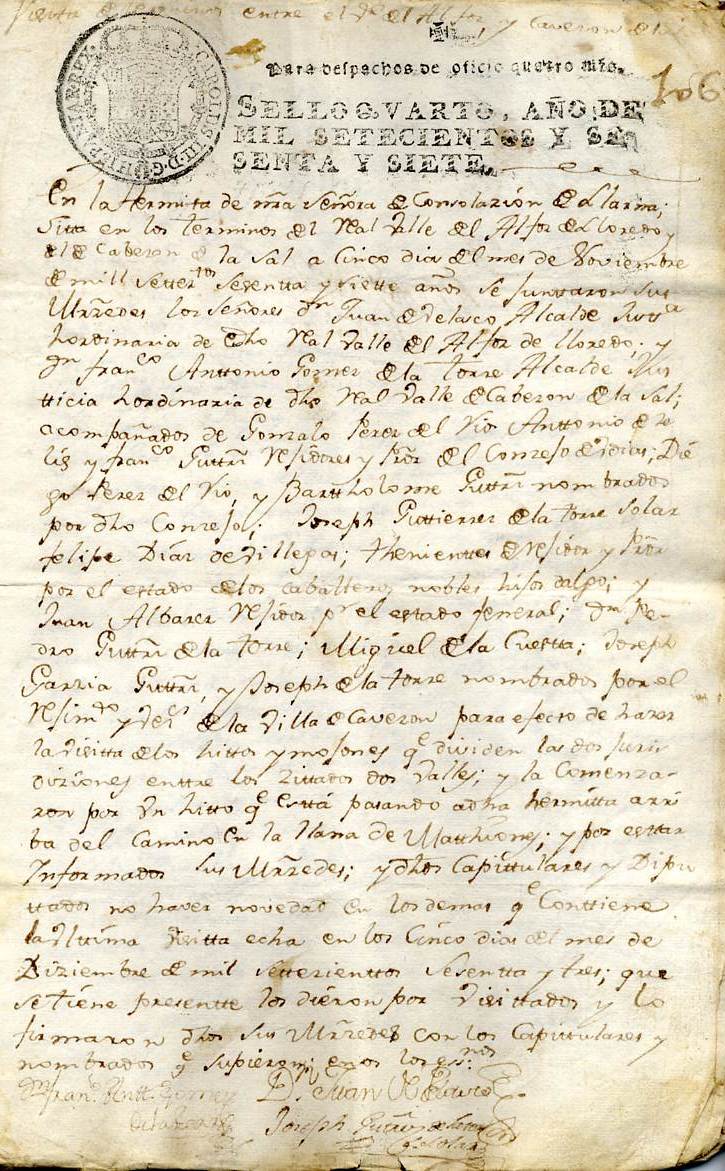 Visita de mojones entre el Vᵉ de el Alfoz y Caveron de la
CAROLUS III D G HISPANIAR REX
Para despachos de oficio quatro mrs.
106
SELLO QVARTO, AÑO DE
MIL SETECIENTOS Y SE
SENTA Y SIETE.
En la Hermita de nrâ Señora de Consolazion de Llarina;
Sitta en los terminos de el Real Valle de el Alfoz de Lloredo y
el de Caberon de la Sal a Cinco dias de el mes de Noviembre
de mill settezᵗᵒˢ Sesentta y siette años se Junttaron sus
Mrẑedes los señores dⁿ Juan de Velasco Alcalde Justtᵃ
hordinaria de dho Real Valle de el Alfoz de Lloredo; y
dⁿ franᶜᵒ Anttonio Gomez de la torre Alcalde Jus
tticia hordinaria de dho Real Valle de Caberon de la Sal;
acompañados de Gonzalo Perez de el Rio Anttonio de Ze
liz y franᶜᵒ Guttrrẑ Residores y Prôr de el Conzejo de Vdias; Die
go Perez de el Rio, y Barttholome Guttrrẑ nombrados
por dho Conzejo; Joseph Guttierrez de la torre Solar
felipe Diaz de Villegas; thenienttes de Residor y Prôr
por el estado de los caballeros nobles hijos dalgo; y
Juan Albarez Residor pʳ el estado general; Dⁿ Pe-
dro Guttrrẑ de la torre; Miguel de la Cuestta; Joseph
Garzia Guttrrẑ, y Joseph de la torre nombrados por el
Resimᵗᵒ y Vezˢ de la Villa de Caveron para efecto de hazer
la Visitta de los hittos y mojones qᵉ dividen las dos Juris
diziones enttre los Zittados dos Valles; y la Comenza-
ron por un hitto qᵉ está pasando a dha hermitta arri
ba del Camino en la llana de Matthiones; y por esttar
Informados sus Mrẑedes; y dhos Capittulares y Dipu
ttados no haver novedad en los demas qᵉ Conttiene
la Ulttima Visitta echa en los Cinco dias de el mes de
Diziembre de mil settezienttos Sesentta y tres; que
se tiene presentte los dieron por Visittados y lo
firmaron dhos sus Mrẑedes con los Capittulares y
nombrados qᵉ supieron; y nos los esⁿᵒˢ
Dⁿ Franᶜᵒ Antt. Gomez
de la torre
D. Juan de Velasco
Joseph Guttrrẑ de la torre
Solar